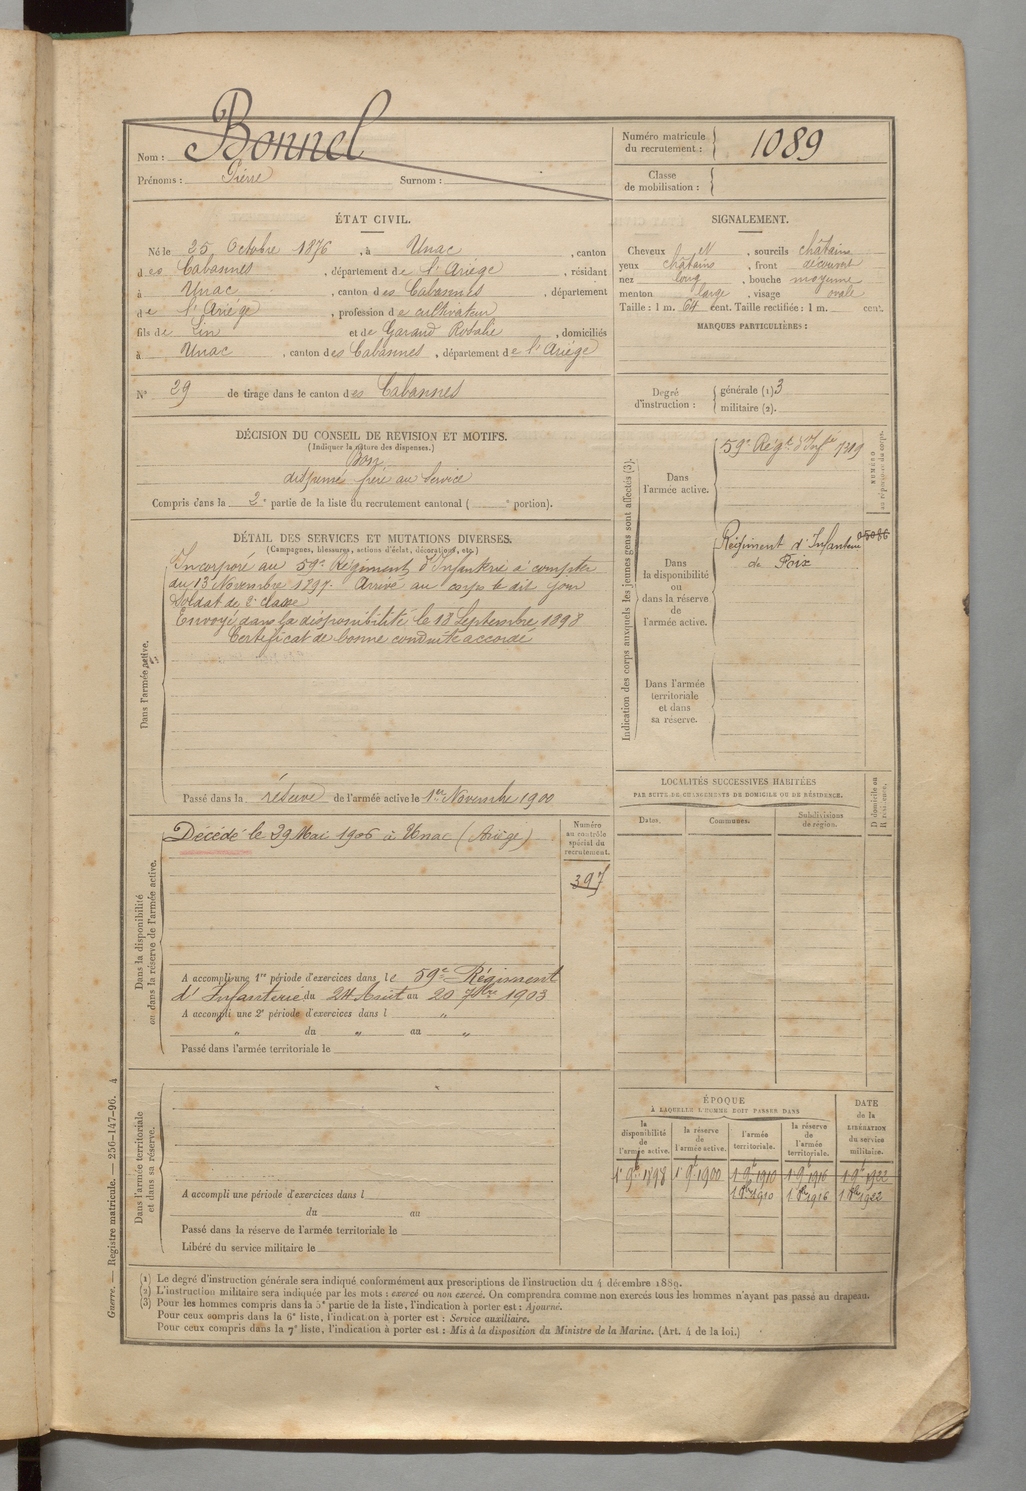 Nom : Bonnel
Prénoms : Pierre Surnom :
Numéro matricule du recrutement : 1089
Classe de mobilisation :
ÉTAT CIVIL.
Né le 25 Octobre 1876, à Unac, canton
des Cabannes, département de l'Ariège, résidant
à Unac, canton des Cabannes, département
de l'Ariège, profession de cultivateur
fils de Lin et de Garaud Rosalie, domiciliés
à Unac, canton des Cabannes, département de l'Ariège
N° 29 de tirage dans le canton des Cabannes
SIGNALEMENT.
Cheveux N, sourcils châtains
yeux châtains, front découvert
nez long, bouche moyenne
menton large, visage ovale
Taille : 1 m. 64 cent. Taille rectifiée : 1 m. cent.
MARQUES PARTICULIÈRES :
Degré d'instruction : générale (1) 3
militaire (2).
DÉCISION DU CONSEIL DE REVISION ET MOTIFS.
(Indiquer la nature des dispenses.)
Bon
dispensé frère au Service
Compris dans la 2e partie de la liste du recrutement cantonal ( e portion).
DÉTAIL DES SERVICES ET MUTATIONS DIVERSES.
(Campagnes, blessures, actions d'éclat, décorations, etc.)
Dans l'armée active.
Incorporé au 59e Régiment d'Infanterie à compter
du 13 Novembre 1897. Arrivé au corps le dit jour
Soldat de 2e classe
Envoyé dans la disponibilité le 18 Septembre 1898
Certificat de bonne conduite accordé
Passé dans la réserve de l'armée active le 1er Novembre 1900
Indication des corps auxquels les jeunes gens sont affectés (3).
Dans l'armée active.
59e Régt d'Infie 7389
NUMÉRO au répertoire du corps.
Dans la disponibilité ou dans la réserve de l'armée active.
Régiment d'Infanterie 05086
de Foix
Dans l'armée territoriale et dans sa réserve.
LOCALITÉS SUCCESSIVES HABITÉES
PAR SUITE DE CHANGEMENTS DE DOMICILE OU DE RÉSIDENCE.
Dates.
Communes.
Subdivisions de région.
D domicile ou R résidence.
Dans la disponibilité ou dans la réserve de l'armée active.
Décédé le 29 Mai 1906 à Unac (Ariège)
Numéro au contrôle spécial du recrutement.
397
A accompli une 1re période d'exercices dans le 59e Régiment
d'Infanterie du 24 Août au 20 7bre 1903
A accompli une 2e période d'exercices dans l "
" du " au "
Passé dans l'armée territoriale le
Dans l'armée territoriale et dans sa réserve.
A accompli une période d'exercices dans l
du au
Passé dans la réserve de l'armée territoriale le
Libéré du service militaire le
ÉPOQUE
À LAQUELLE L'HOMME DOIT PASSER DANS
la disponibilité de l'armée active.
la réserve de l'armée active.
l'armée territoriale.
la réserve de l'armée territoriale.
DATE de la LIBÉRATION du service militaire.
1er 9bre 1898 1er 9bre 1900 1er 9bre 1910 1er 9bre 1916 1er 9bre 1922
(1) Le degré d'instruction générale sera indiqué conformément aux prescriptions de l'instruction du 4 décembre 1889.
(2) L'instruction militaire sera indiquée par les mots : exercé ou non exercé. On comprendra comme non exercés tous les hommes n'ayant pas passé au drapeau.
(3) Pour les hommes compris dans la 5e partie de la liste, l'indication à porter est : Ajourné.
Pour ceux compris dans la 6e liste, l'indication à porter est : Service auxiliaire.
Pour ceux compris dans la 7e liste, l'indication à porter est : Mis à la disposition du Ministre de la Marine. (Art. 4 de la loi.)
Guerre. — Registre matricule. — 256-147-96. 4